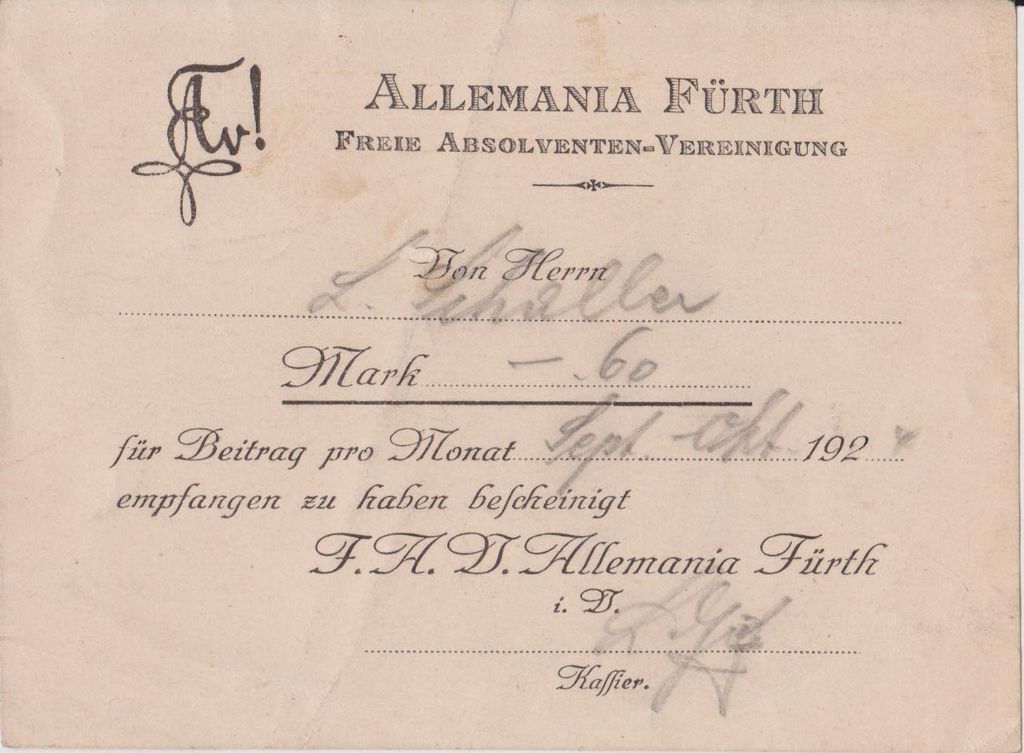 Av!
ALLEMANIA FÜRTH
FREIE ABSOLVENTEN-VEREINIGUNG
Von Herrn
L. Schaller
Mark — .60
für Beitrag pro Monat Sept. Okt. 1924
empfangen zu haben beſcheinigt
F. A. V. Allemania Fürth
i. V.
Kaſſier.